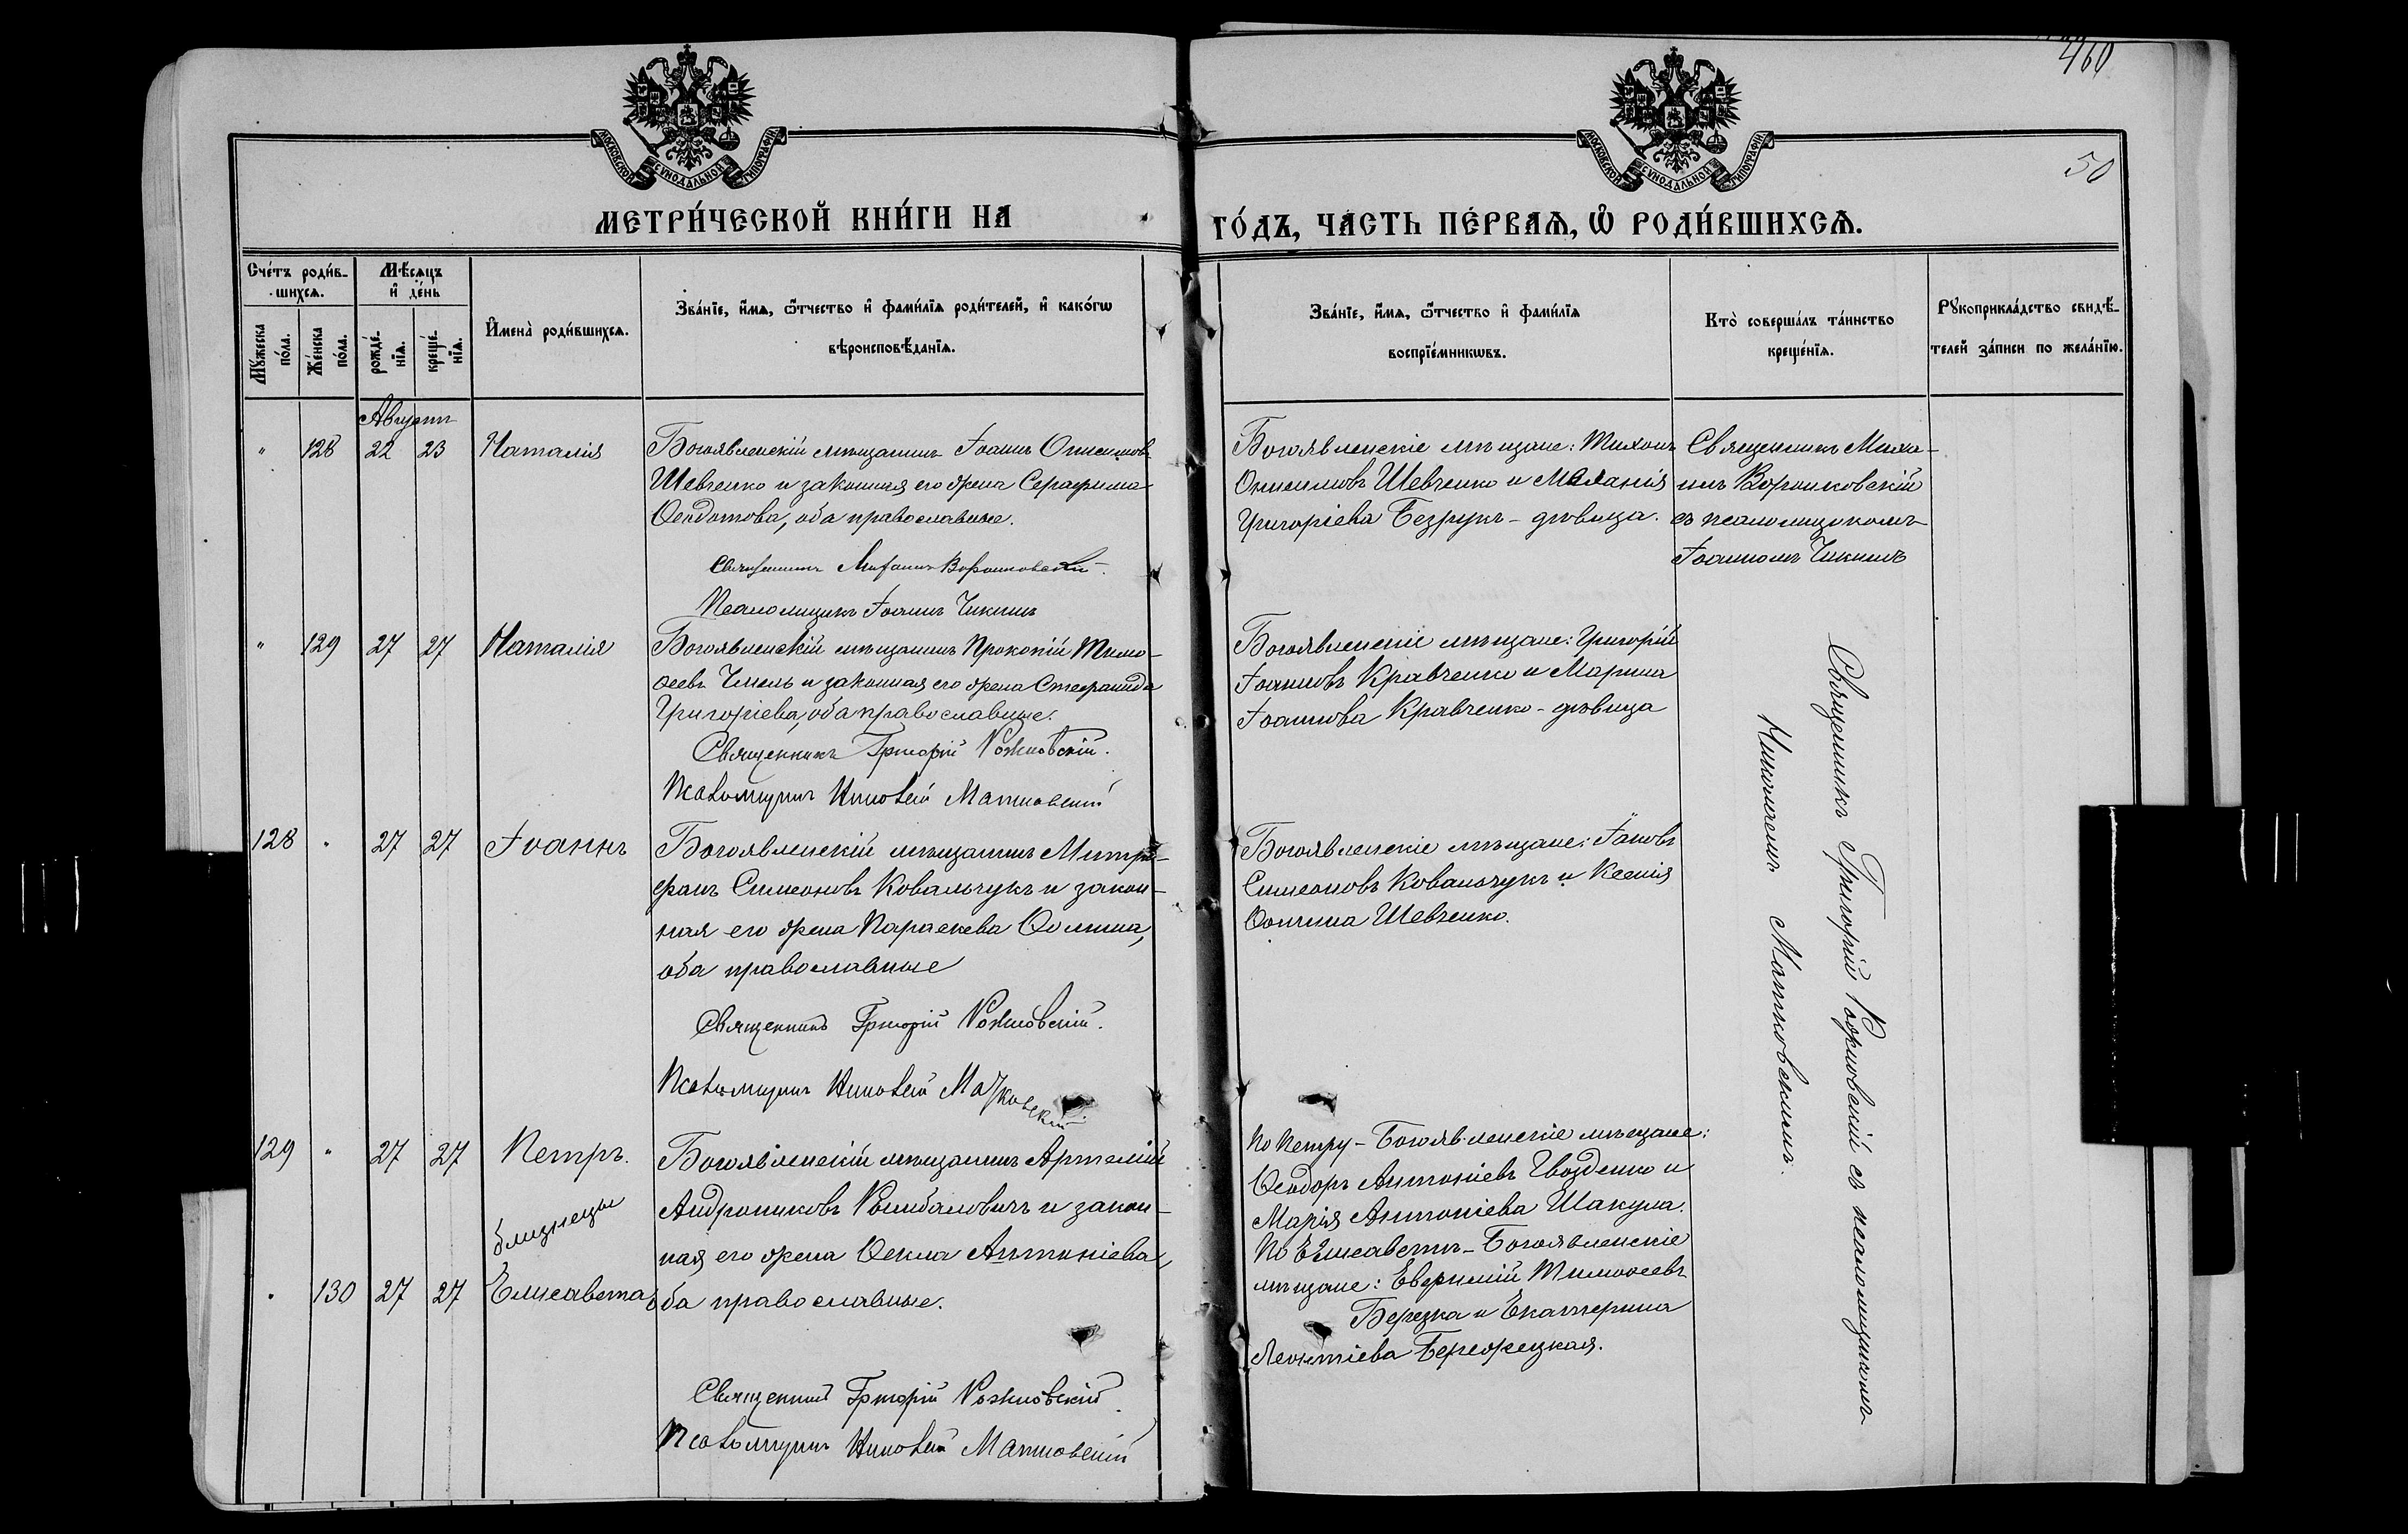 460
50
МОСКОВСКОЙ СѴНОДАЛЬНОЙ ТИПОГРАФІИ
МОСКОВСКОЙ СѴНОДАЛЬНОЙ ТИПОГРАФІИ
МЕТРИ́ЧЕСКОЙ КНИ́ГИ НА
ГО́ДЪ, ЧА́СТЬ ПЕ́РВАѦ, Ѽ РОДИ́ВШИХСѦ.
Сче́тъ роди́в-
шихсѧ.
Мꙋ́жеска по́ла.
Же́нска по́ла.
Мѣ́сѧцъ и҆ де́нь
рожде́-нїѧ.
креще́-нїѧ.
И҆мена̀ роди́вшихсѧ.
Зва́нїе, и҆́мѧ, ѻ҆́тчество и҆ фами́лїѧ роди́телей, и҆ како́гѡ
вѣроисповѣ́данїѧ.
Зва́нїе, и҆́мѧ, ѻ҆́тчество и҆ фами́лїѧ
воспрїе́мникѡвъ.
Кто̀ соверша́лъ та́инство
креще́нїѧ.
Рꙋкоприкла́дство свидѣ́-
телей за́писи по жела́нїю.
Августъ
" 128 22 23 Наталія
Богоявленскій мѣщанинъ Іоаннъ Онисимовъ
Шевченко и законная его жена Серафима
Ѳеодотова, оба православные.
Священникъ Михаилъ Воронковскій.
Псаломщикъ Іоаннъ Чикинъ
Богоявленскіе мѣщане: Тихонъ
Онисимовъ Шевченко и Меланія
Григоріева Безрукъ - дѣвица.
Священникъ Миха-
илъ Воронковскій
съ псаломщикомъ
Іоанномъ Чикинъ
" 129 27 27 Наталія
Богоявленскій мѣщанинъ Прокопій Тимо-
ѳеевъ Чмель и законная его жена Стефанида
Григоріева, оба православные.
Священникъ Григорій Рожновскій.
Псаломщикъ Николай Матковскій
Богоявленскіе мѣщане: Григорій
Іоанновъ Кравченко и Марина
Іоаннова Кравченко - дѣвица
128 " 27 27 Іоаннъ
Богоявленскій мѣщанинъ Митро-
фанъ Симеоновъ Ковальчукъ и закон-
ная его жена Параскева Ѳомина,
оба православные
Священникъ Григорій Рожновскій.
Псаломщикъ Николай Матковскій
Богоявленскіе мѣщане: Іаковъ
Симеоновъ Ковальчукъ и Ксенія
Ѳомина Шевченко.
129 " 27 27 Петръ.
близнецы
" 130 27 27 Елисавета
Богоявленскій мѣщанинъ Артемій
Андрониковъ и закон-
ная его жена Ѳекла Антоніева,
оба православные.
Священникъ Григорій Рожновскій.
Псаломщикъ Николай Матковскій
По Петру - Богоявленскіе мѣщане:
Ѳеодоръ Антоніевъ Гвозденко и
Марія Антоніева Шакула.
По Елисаветѣ - Богоявленскіе
мѣщане: Евфимій Тимоѳеевъ
Березка и Екатерина
Леонтіева Бережецкая.
Священникъ Григорій Рожновскій съ псаломщикомъ
Николаемъ Матковскимъ.